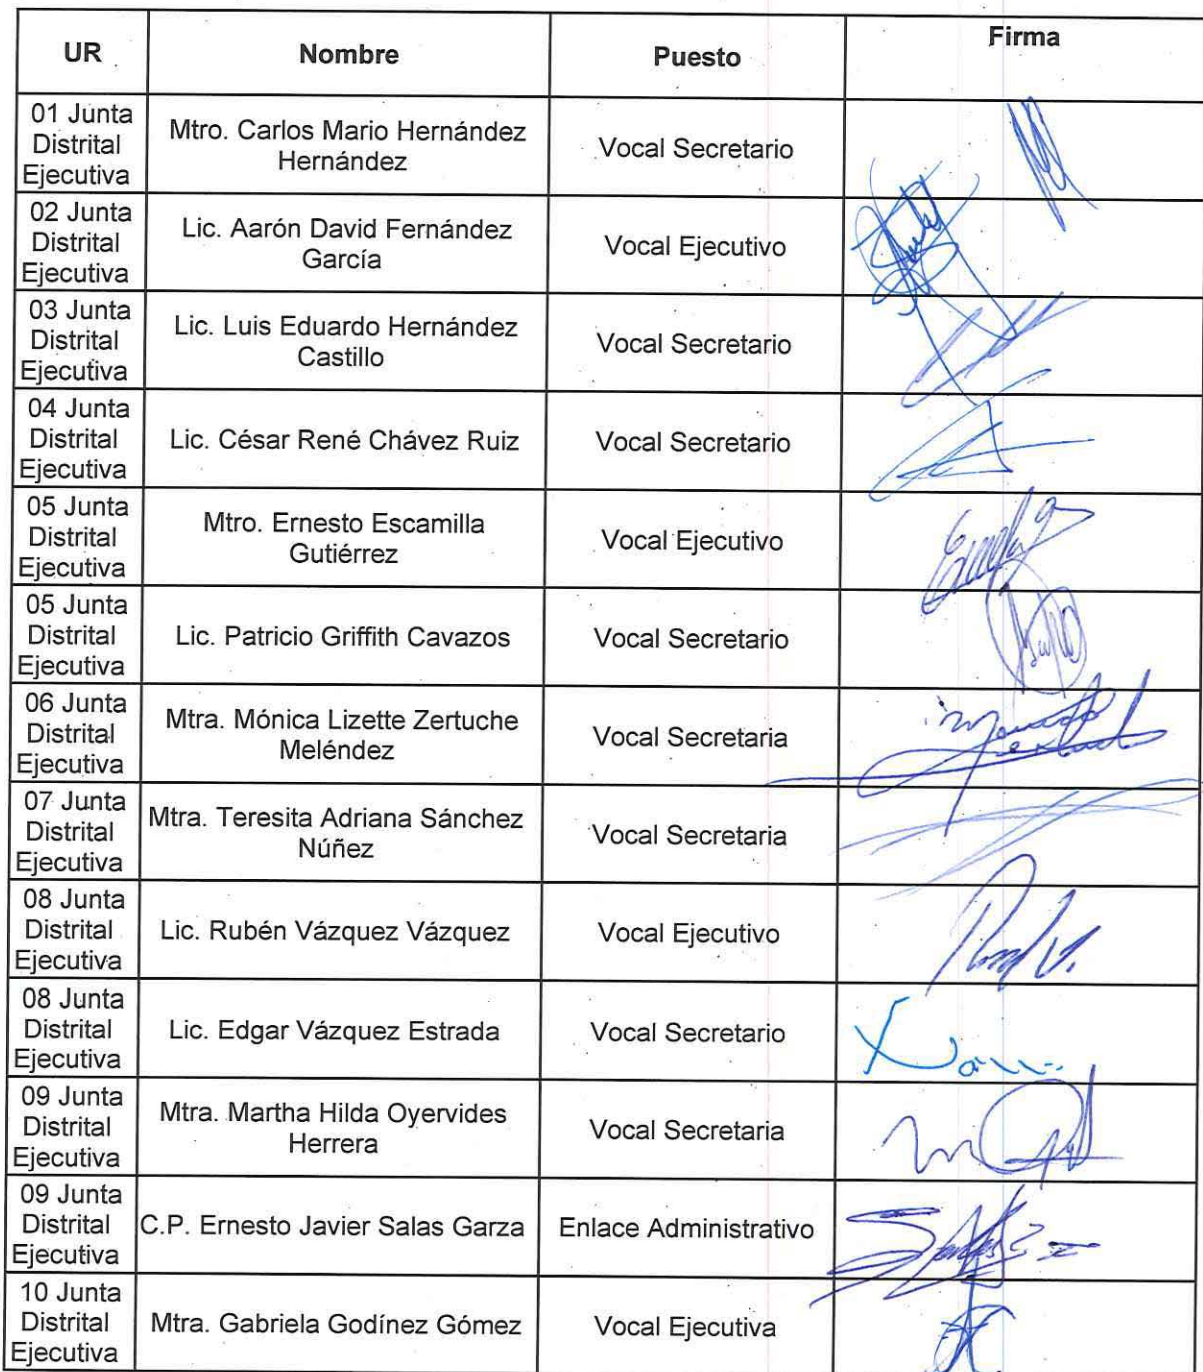 UR Nombre Puesto Firma
01 Junta
Distrital
Ejecutiva
Mtro. Carlos Mario Hernández
Hernández
Vocal Secretario
02 Junta
Distrital
Ejecutiva
Lic. Aarón David Fernández
García
Vocal Ejecutivo
03 Junta
Distrital
Ejecutiva
Lic. Luis Eduardo Hernández
Castillo
Vocal Secretario
04 Junta
Distrital
Ejecutiva
Lic. César René Chávez Ruiz
Vocal Secretario
05 Junta
Distrital
Ejecutiva
Mtro. Ernesto Escamilla
Gutiérrez
Vocal Ejecutivo
05 Junta
Distrital
Ejecutiva
Lic. Patricio Griffith Cavazos
Vocal Secretario
06 Junta
Distrital
Ejecutiva
Mtra. Mónica Lizette Zertuche
Meléndez
Vocal Secretaria
07 Junta
Distrital
Ejecutiva
Mtra. Teresita Adriana Sánchez
Núñez
Vocal Secretaria
08 Junta
Distrital
Ejecutiva
Lic. Rubén Vázquez Vázquez
Vocal Ejecutivo
08 Junta
Distrital
Ejecutiva
Lic. Edgar Vázquez Estrada
Vocal Secretario
09 Junta
Distrital
Ejecutiva
Mtra. Martha Hilda Oyervides
Herrera
Vocal Secretaria
09 Junta
Distrital
Ejecutiva
C.P. Ernesto Javier Salas Garza
Enlace Administrativo
10 Junta
Distrital
Ejecutiva
Mtra. Gabriela Godínez Gómez
Vocal Ejecutiva